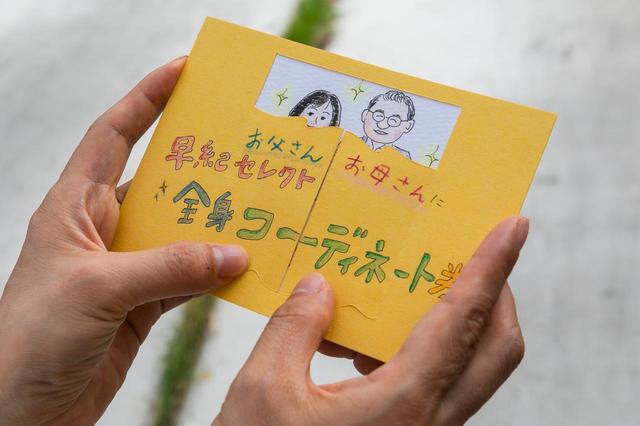 お父さん
お母さんに
早紀セレクト
全身コーディネート券